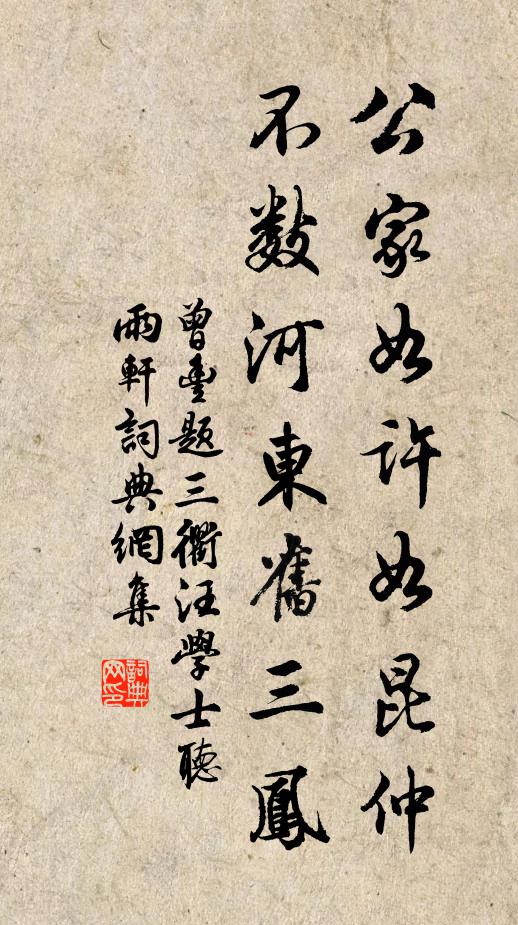 公家如許如昆仲
不數河東舊三鳳
曾豐題三衢汪學士聽
雨軒詞典網集
詞典
网印